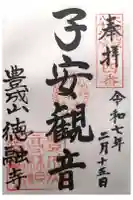 奉拝
令和七年
二月十五日
子安観音
豊成山
徳融寺